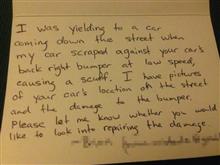 I was yielding to a car
coming down the street when
my car scraped against your car's
back right bumper at low speed,
causing a scuff. I have pictures
of your car's location on the street
and the damage to the bumper.
Please let me know whether you would
like to look into repairing the damage.